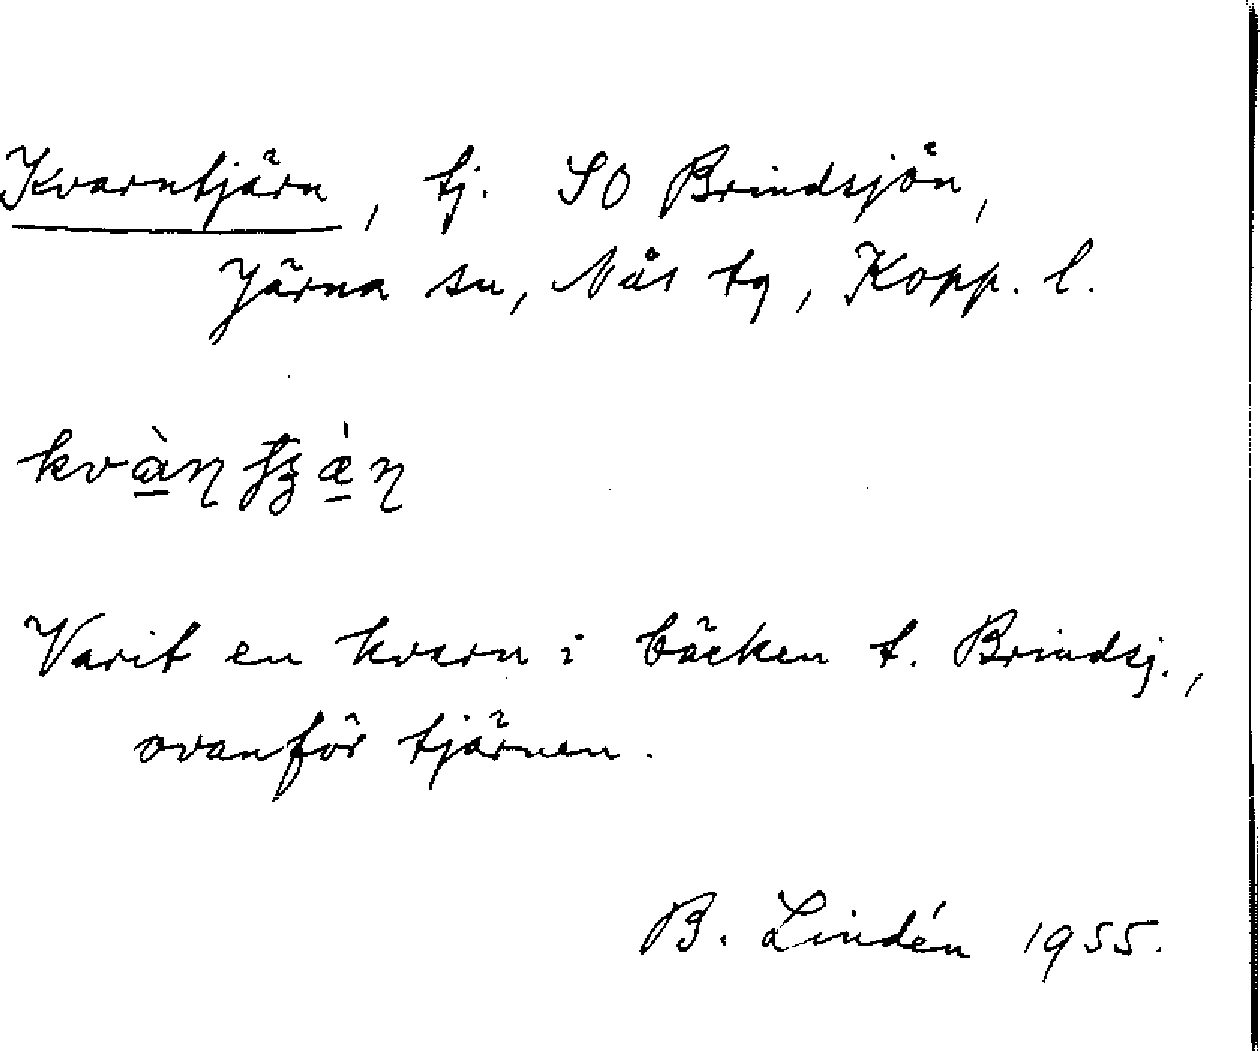 Kvarntjärn, tj. SO Brindsjön,
Järna sn, Nås tg, Kopp. l.
Varit en kvarn i bäcken t. Brindsj.,
ovanför tjärnen.
B. Lindén 1955.